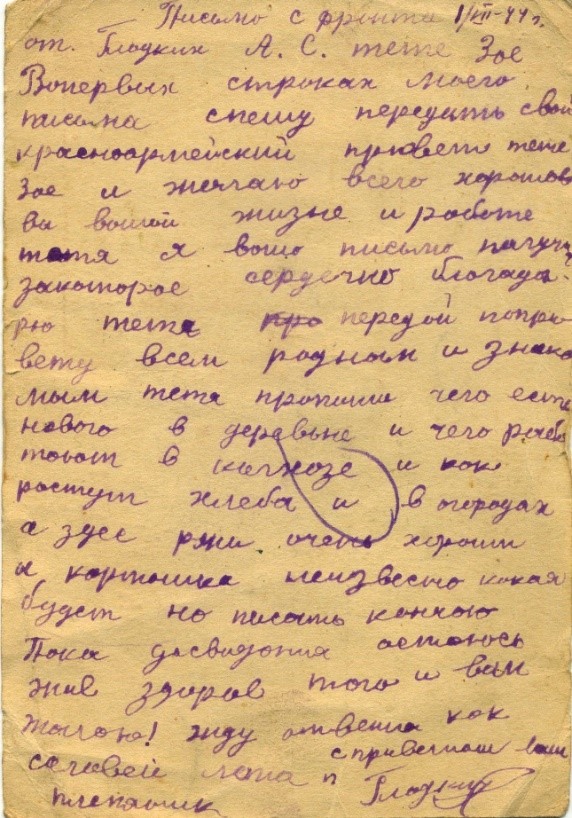 Письмо с фронта 1/VII-44 г.
от. Гладких А. С. тете Зое
Вопервых строках моего
письма спешу передать свой
красноармейский привет тете
Зое и жалаю всего хорошого
ва вашой жизне и работе
тетя я вашо письмо палучил
закоторое сердечно благада-
рю тетя про передой попри
вету всем родным и знако
мым тетя пропиши чего есть
нового в деревьне и чего рабо
тоют в калхозе и как
ростут хлеба и в огородах
а здес ржи очень хороши
а картошка неизвесно какая
будет но писать кончаю
Пока досвидания остоюсь
жив здоров того и вам
жалаю! жду ответа как
соловей лета с приветом ваш
племяник Гладких